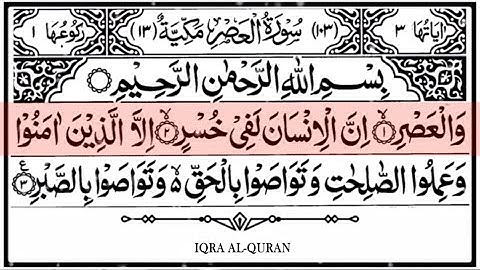 اٰيَاتُهَا ٣ (١٠٣) سُوْرَةُ الْعَصْرِ مَكِّيَّةٌ (١٣) رُكُوْعُهَا ١
بِسْمِ اللّٰهِ الرَّحْمٰنِ الرَّحِيْمِ
وَالْعَصْرِ ۙ﴿١﴾ اِنَّ الْاِنْسَانَ لَفِىْ خُسْرٍ ۙ﴿٢﴾ اِلَّا الَّذِيْنَ اٰمَنُوْا
وَعَمِلُوا الصّٰلِحٰتِ وَتَوَاصَوْا بِالْحَقِّ ۙ۬ وَتَوَاصَوْا بِالصَّبْرِ ﴿٣﴾ ع
IQRA AL-QURAN